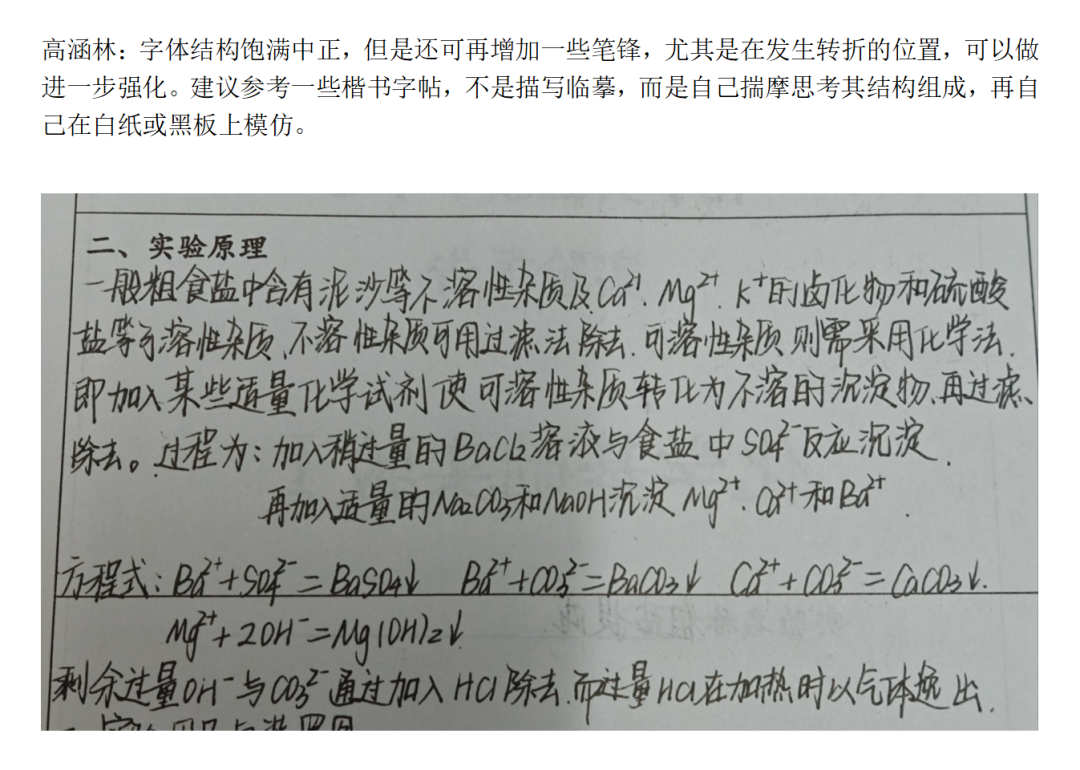 高涵林：字体结构饱满中正，但是还可再增加一些笔锋，尤其是在发生转折的位置，可以做
进一步强化。建议参考一些楷书字帖，不是描写临摹，而是自己揣摩思考其结构组成，再自
己在白纸或黑板上模仿。
二、实验原理
一般粗食盐中含有泥沙等不溶性杂质及Ca²⁺、Mg²⁺、K⁺的卤化物和硫酸
盐等可溶性杂质、不溶性杂质可用过滤法除去.可溶性杂质则需采用化学法.
即加入某些适量化学试剂使可溶性杂质转化为不溶的沉淀物、再过滤、
除去。过程为：加入稍过量的BaCl₂溶液与食盐中SO₄²⁻反应沉淀.
再加入适量的Na₂CO₃和NaOH沉淀Mg²⁺、Ca²⁺和Ba²⁺.
方程式：Ba²⁺+SO₄²⁻=BaSO₄↓ Ba²⁺+CO₃²⁻=BaCO₃↓ Ca²⁺+CO₃²⁻=CaCO₃↓.
Mg²⁺+2OH⁻=Mg(OH)₂↓
剩余过量OH⁻与CO₃²⁻通过加入HCl除去.而过量HCl在加热时以气体逸出.